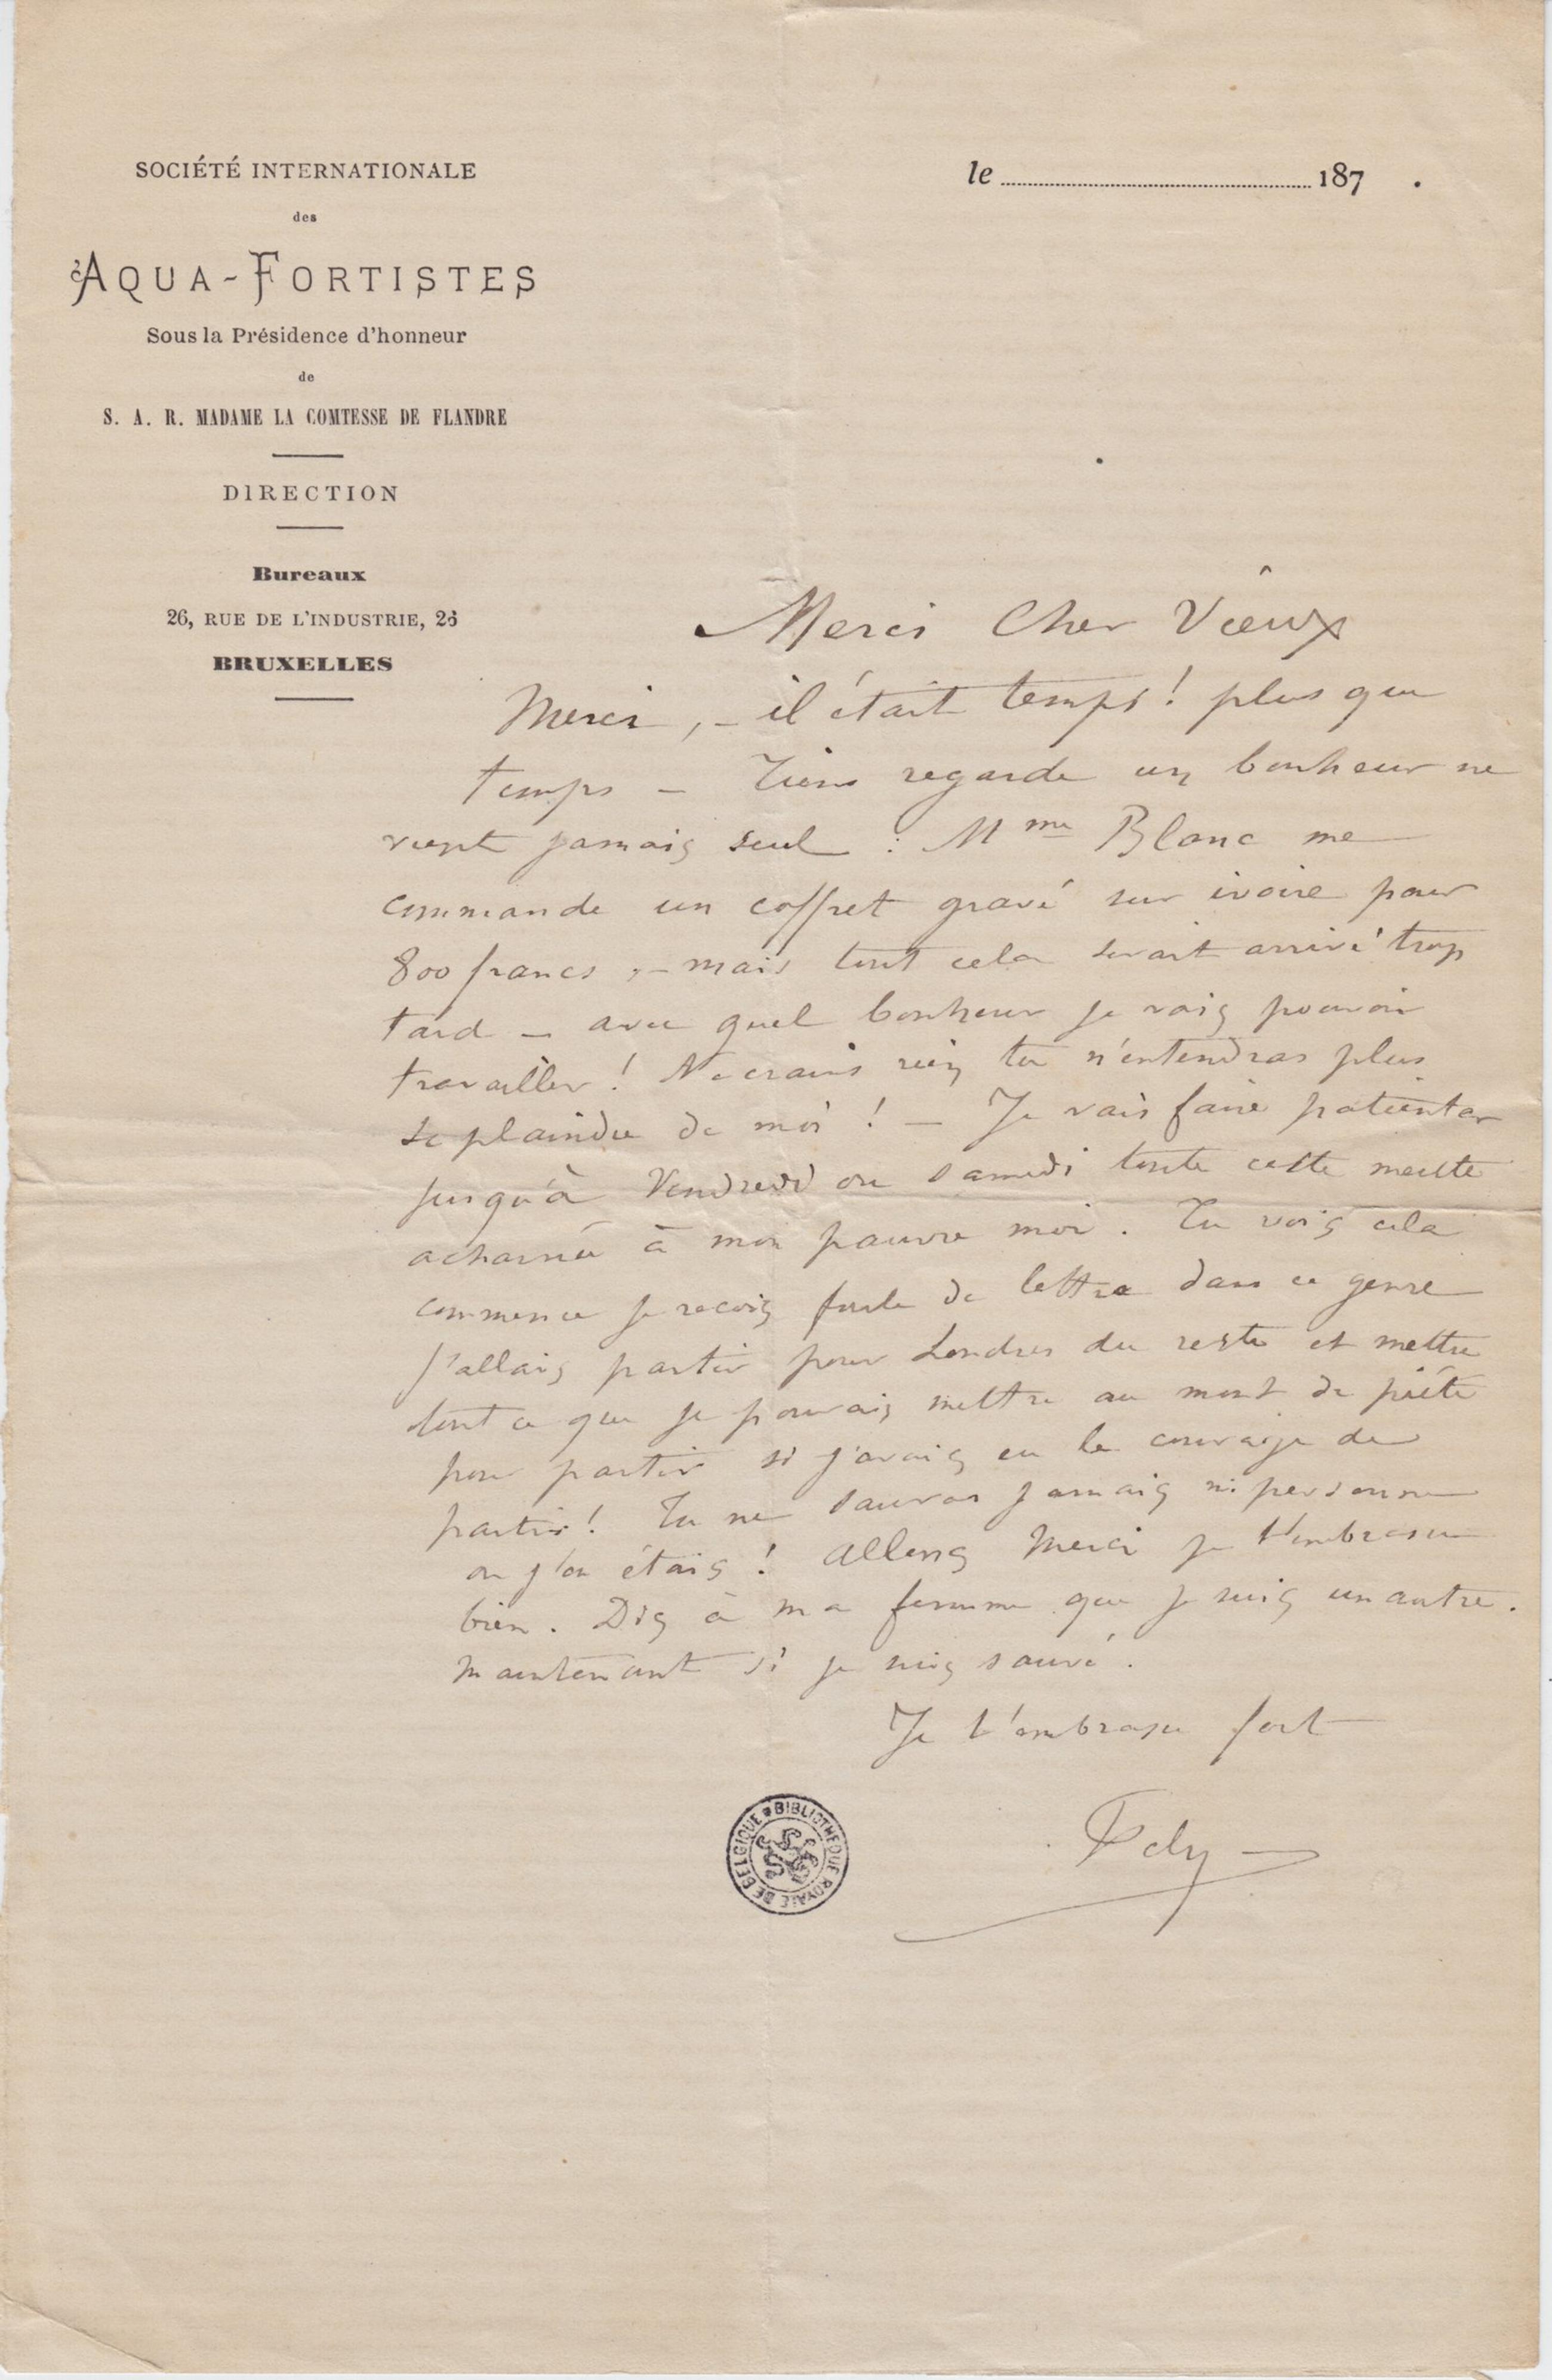 SOCIÉTÉ INTERNATIONALE
des
AQUA-FORTISTES
Sous la Présidence d'honneur
de
S. A. R. MADAME LA COMTESSE DE FLANDRE
DIRECTION
Bureaux
26, RUE DE L'INDUSTRIE, 26
BRUXELLES
le 187 .
Merci Cher Vieux
Merci, – il était temps ! plus que
temps – Tiens regarde un bonheur ne
vient jamais seul : Mme Blanc me
commande un coffret gravé sur ivoire pour
800 francs, – mais tout cela serait arrivé trop
tard – avec quel bonheur je vais pouvoir
travailler ! Ne crains rien tu n'entendras plus
se plaindre de moi ! – Je vais faire patienter
jusqu'à Vendredi ou Samedi toute cette meute
acharnée à mon pauvre moi. Tu vois cela
commence je reçois foule de lettre dans ce genre
J'allais partir pour Londres du reste et mettre
tout ce que je pouvais mettre au mont de piété
pour partir si j'avais eu le courage de
partir ! Tu ne sauras jamais ni personne
où j'en étais ! Allons Merci je t'embrasse
bien. Dis à ma femme que je suis un autre.
maintenant si je suis sauvé.
Je t'embrasse fort
Fély
BIBLIOTHÈQUE ROYALE DE BELGIQUE